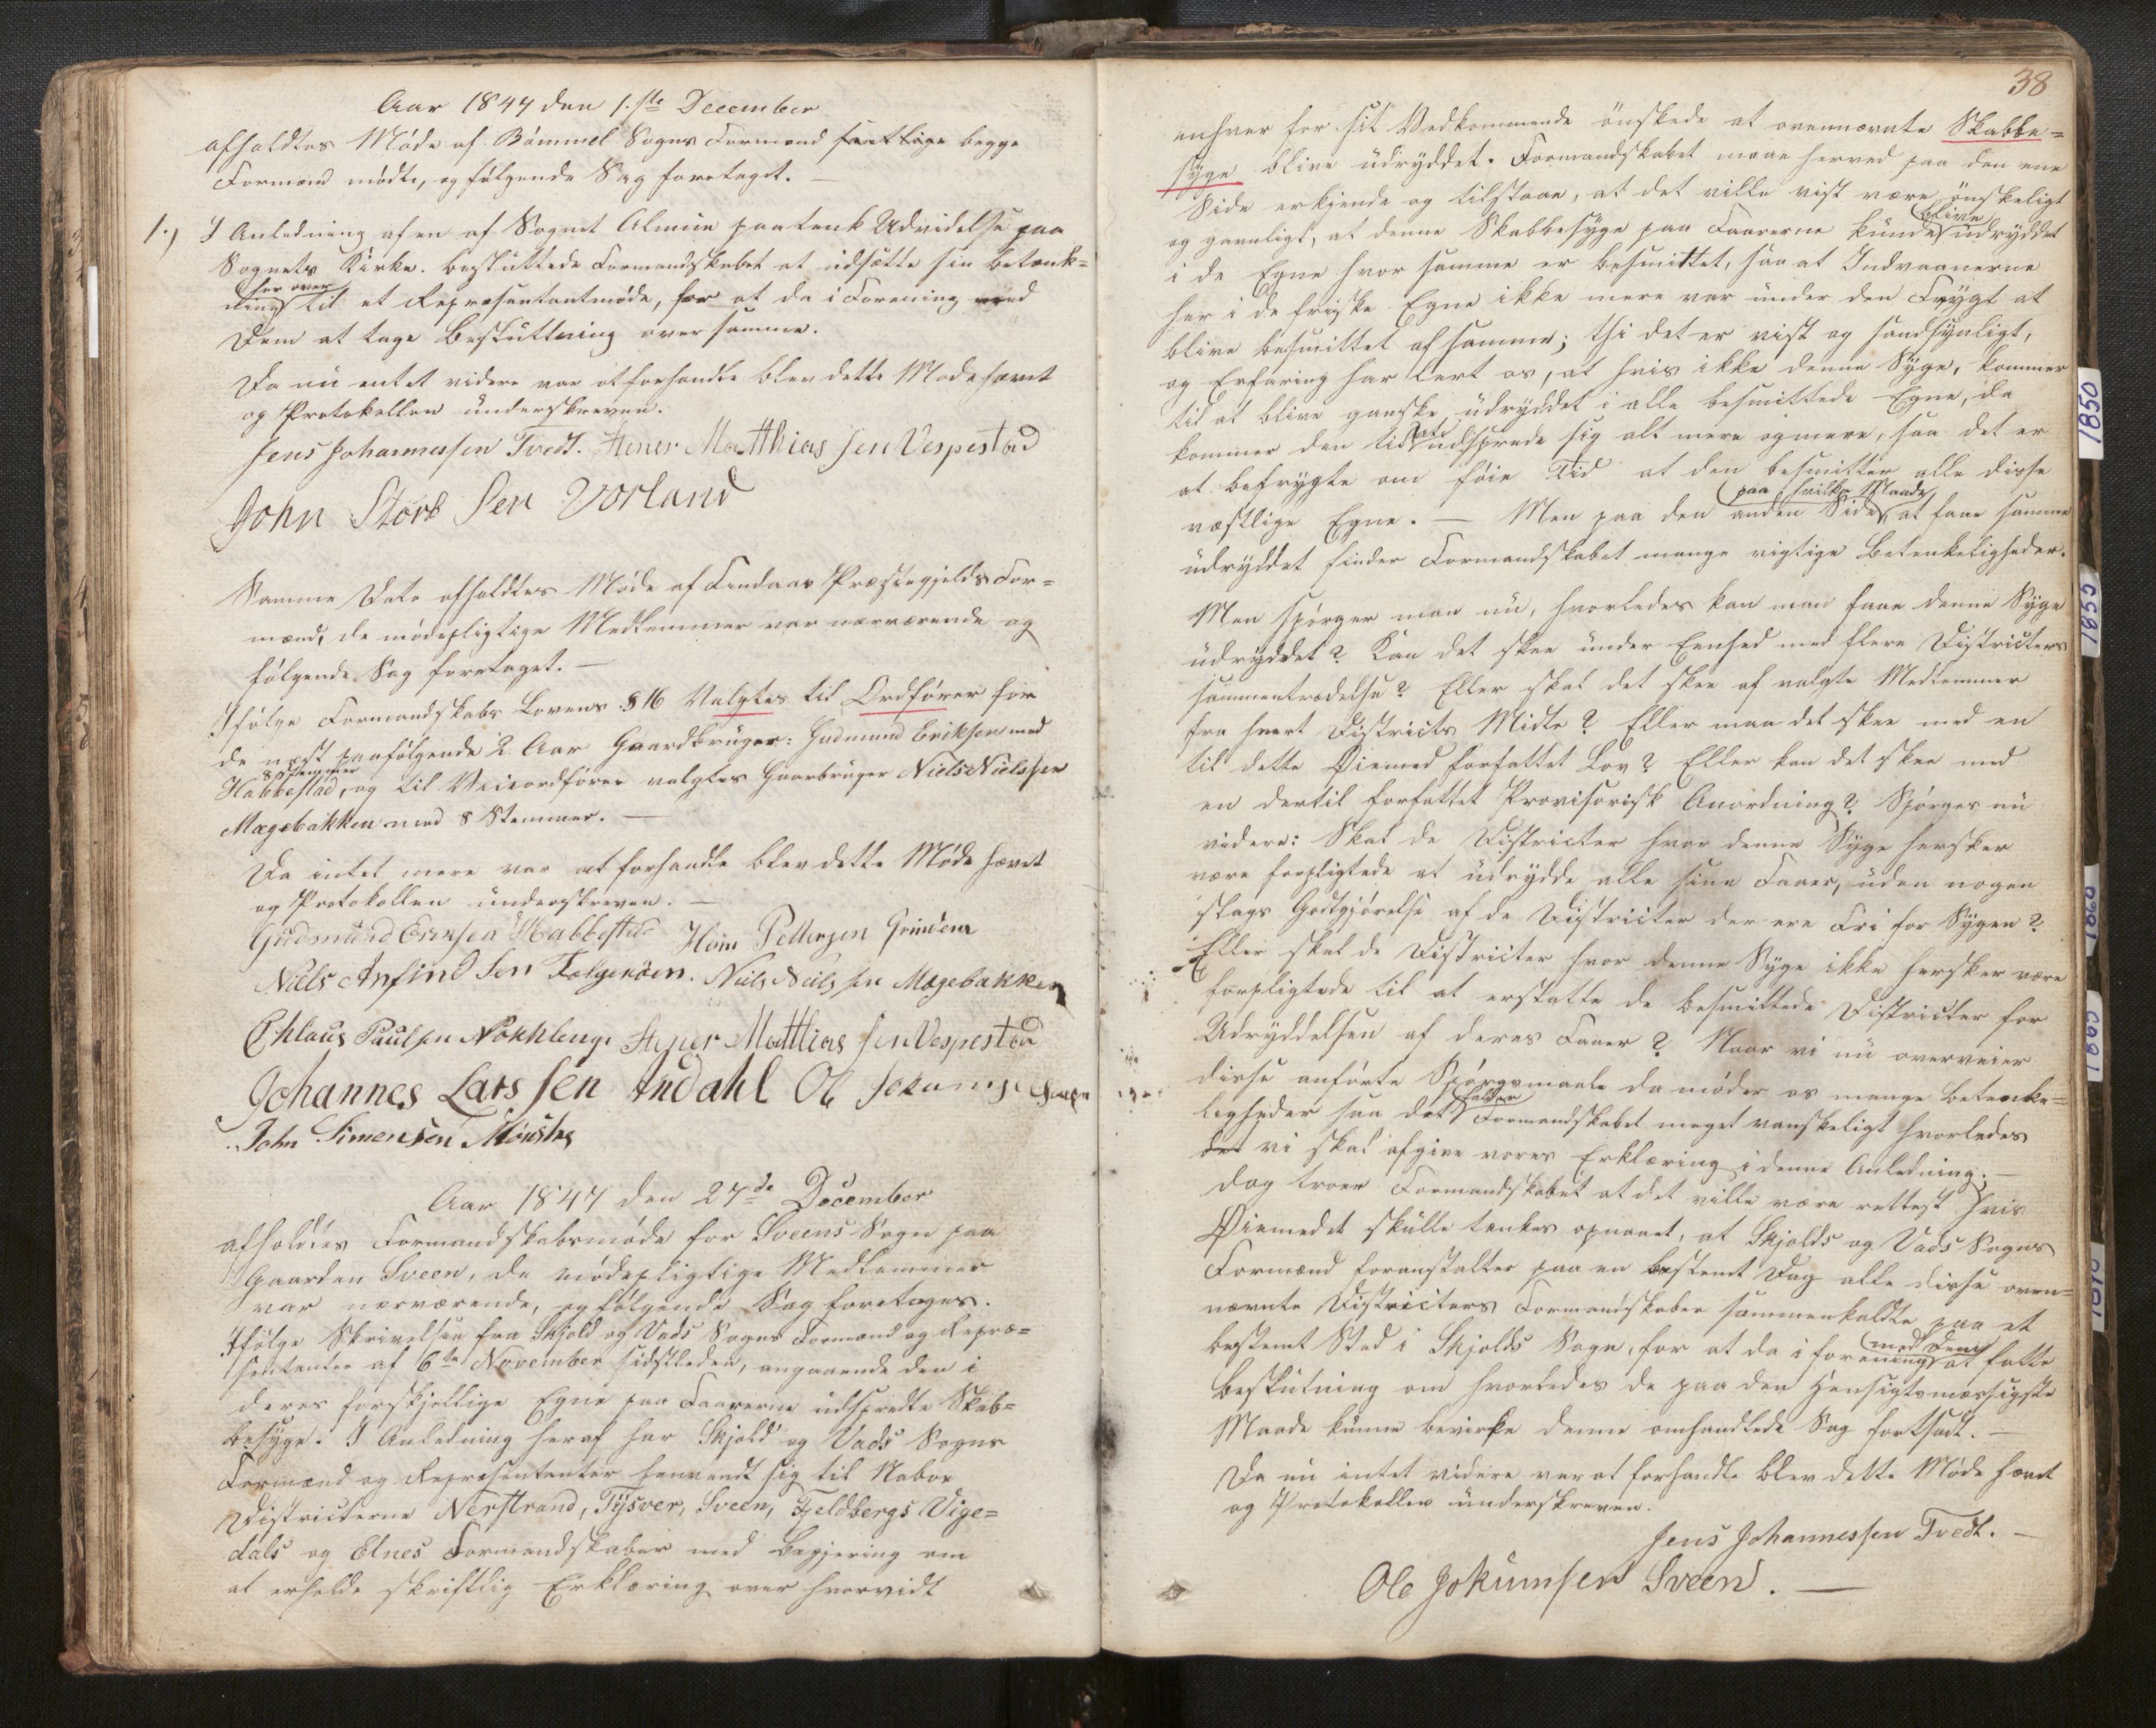 Aar 1847 den 1.ste December
afholdtes Møde af Bømmel Sogns Formænd samtlige begge
Formænd mødte, og følgende Sag foretaget. —
1.) I Anledning af en af Sognet Almue paatenk Udvidelse paa
Sognets Kirke. besluttede Formandskabet at udsætte sin betænk=
her over
ning til et Repræsentantmøde, for at da i Forening med
Dem at tage Beslutning over samme.
Da nu entet videre var at forhandle blev dette Møde hævet
og Protokollen underskreven.
Jens Johannessen Tvedt. Stener Matthias sen Vespestad
John Storb Sen Vorland
Samme Dato afholdtes Møde af Findaas Præstegjelds For=
mænd, de mødepligtige Medlemmer var nærværende og
følgende Sag foretaget. —
Ifølge Formandskabs Lovens § 16 Valgtes til Ordfører for
de næst paafølgende 2 Aar Gaardbruger: Gudmund Eriksen med
8 Stemmer
Habbestad, og til Viceordfører valgtes Gaarbruger Niels Nielssen
Mægebakken med 8 Stemmer. —
Da intet mere var at forhandle blev dette Møde hævet
og Protokollen underskreven. —
Gudmund Eriksen Habbestad Pettersen Grinden
Niels Anfind Sen Folgerøen. Niels Niels sen Mægebakken
Chlaus Paulsen Stener Matthias sen Vespestad
Johannes Lars sen Indahl Ole Jokumsen Sveen
John Simensen
Aar 1847 den 27de December
afholdtes Formandskabsmøde for Sveens Sogn paa
Gaarden Sveen, de mødepligtige Medlemmer
var nærværende, og følgende Sag foretages.
Ifølge Skrivelsen fra Skjold og Vads Sogns Formænd og Repræ=
sentanter af 6te November sidstleden, angaaende den i
deres forskjellige Egne paa Faarerne udspredte Skab=
besyge. I Anledning heraf har Skjold og Vads Sogns
Formænd og Repræsentanter henvendt sig til Nabor
Districterne Nerstrand, Tysver, Sveen, Fjeldbergs Vige=
dals og Etnes Formandskaber med Begjering om
at erholde skriftlig Erklæring over hvorvidt
38
enhver for sit Vedkommende ønskede at ovennævnte Skabbe=
syge blive udryddet. Formandskabet maae herved paa den ene
Side erkjende og tilstaae, at det ville vist være ønskeligt
blive
og gavnligt, at denne Skabbesyge paa Faarerne kunde udryddet
i de Egne hvor samme er besmittet, saa at Indvaanerne
her i de friske Egne ikke mere var under den Frygt at
blive besmittet af samme; thi det er vist og sandsynligt,
og Erfaring har lert os, at hvis ikke denne Syge, kommer
til at blive ganske udryddet i alle besmittede Egne, da
kommer den til at udsprede sig alt mere og mere, saa det er
at befrygte om føie Tid at den besmitter alle disse
paa hvilke Maade
vestlige Egne. — Men paa den anden Side, at faae samme
udryddet finder Formandskabet mange vigtige Betenkeligheder.
Men spørger man nu, hvorledes kan man faae denne Syge
udryddet? Kan det skee under Eenhed med flere Districters
sammentrædelse? Eller skal det skee af valgte Medlemmer
fra hvert Districts Midte? Eller maa det skee med en
til dette Øiemed forfattet Lov? Eller kan det skee med
en dertil forfattet Provisorisk Anordning? Spørges nu
videre: Skal de Districter hvor denne Syge hersker
være forpligtede at udrydde alle sine Faarer, uden nogen
slags Godtgjørelse af de Districter der ere Fri for Sygen?
Eller skal de Districter hvor denne Syge ikke hersker være
forpligtede til at erstatte de besmittede Districter for
Udryddelsen af deres Faarer? Naar vi nu overveier
disse anførte Spørgsmaale da møder os mange betenke=
falder
ligheder saa det Formandskabet meget vanskeligt hvorledes
det vi skal afgive vores Erklæring i denne Anledning; —
dog troer Formandskabet at det ville være rettest hvis
Øiemedet skulle tenkes opnaaet, at Skjolds og Vads Sogns
Formænd foranstalter paa en bestemt Dag alle disse oven=
nævnte Districters Formandskaber sammenkaldte paa et
bestemt Sted i Skjolds Sogn, for at da i forening med Dem at fatte
Beslutning om hvorledes de paa den Hensigtsmæssigste
Maade kunne bevirke denne omhandlede Sag fortsadt. —
Da nu intet videre var at forhandle blev dette Møde hævet
og Protokollen underskreven.
Jens Johannessen Tvedt. —
Ole Jokumsen Sveen. —
1850
1855
1860
1865